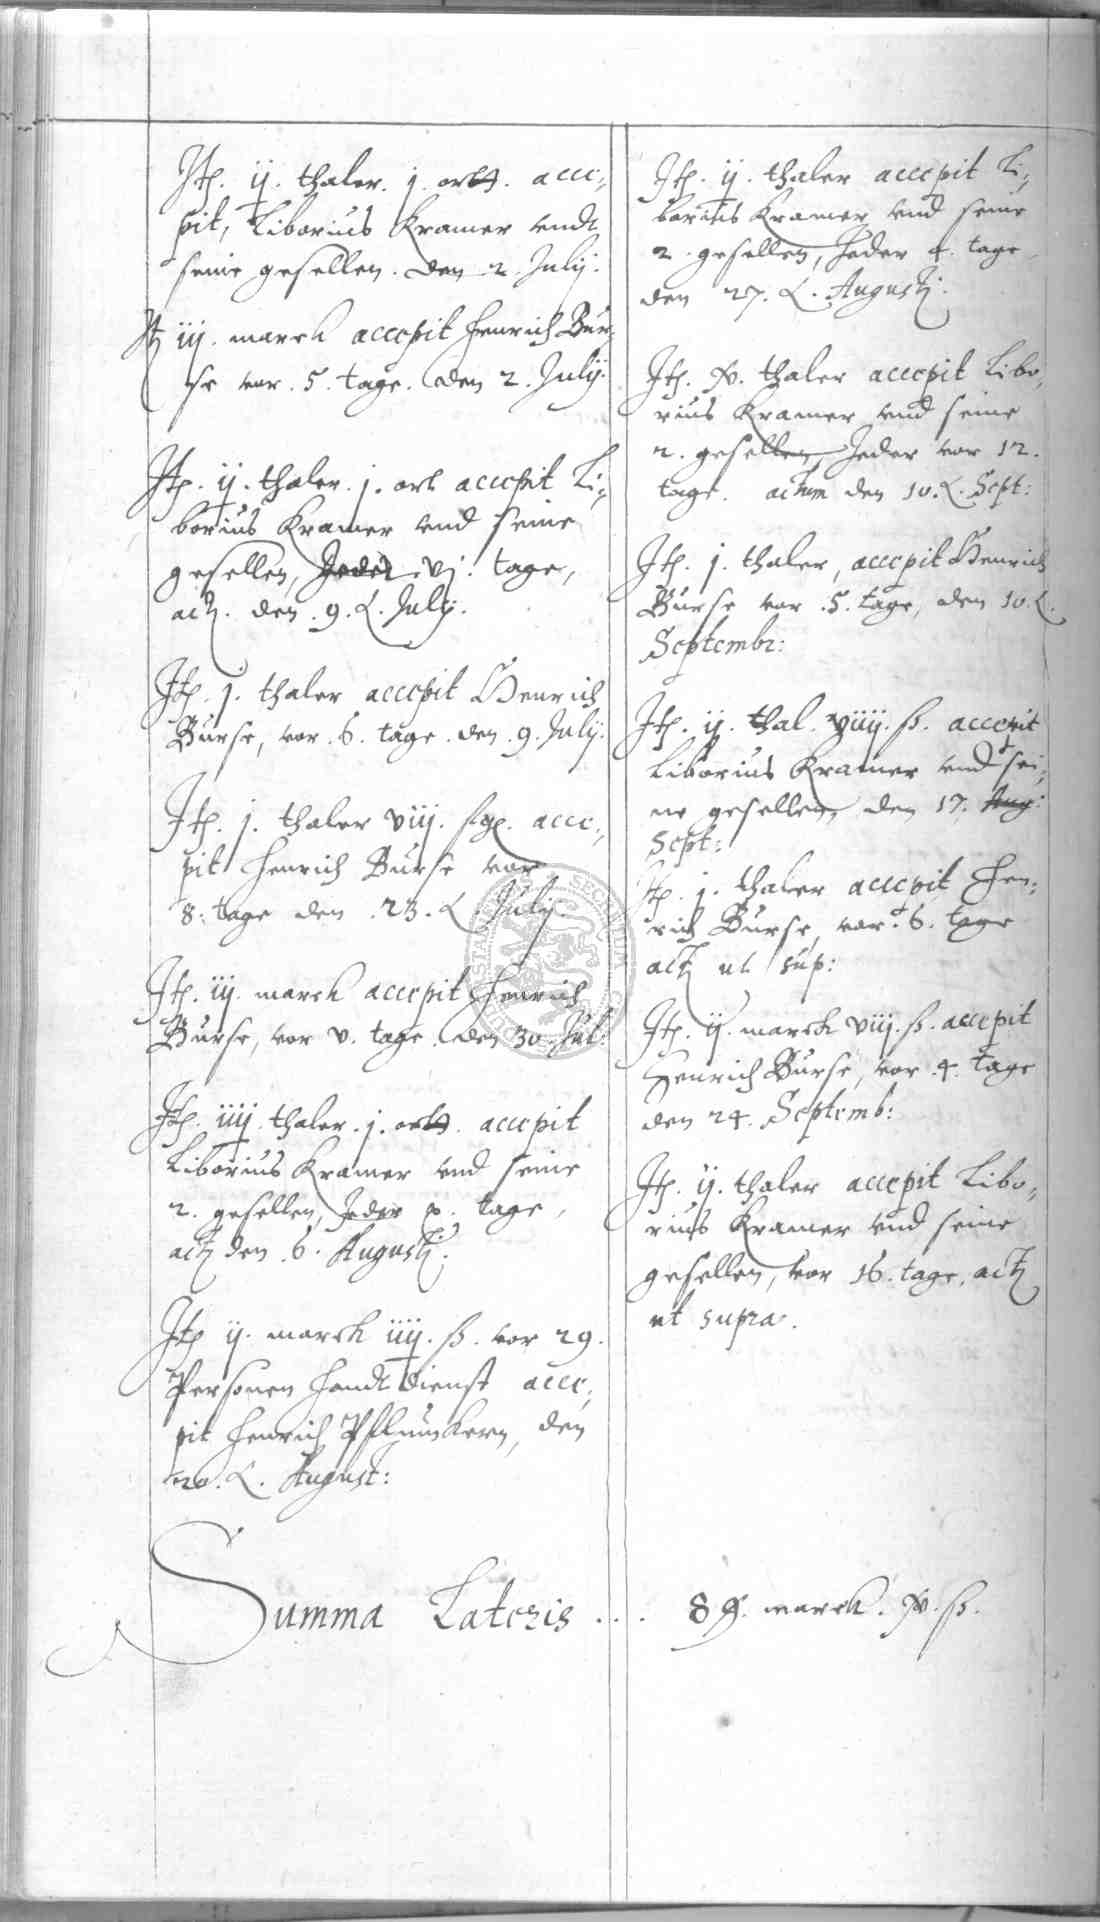 Itp. ij. thaler. j. ort. acce„
pit, Liborius Kramer undt
seine gesellen. den 2. Julij.
It iij. marck accepit Henrich Bur„
se vor. 5. tage. den 2. Julij.
Itp. ij. thaler. j. ort accepit Li„
borius Kramer vnd seine
gesellen, Jeder. vj. tage,
act. den. 9. Julij.
Itp. j. thaler accepit Henrich
Burse, vor. 6. tage. den. 9. Julij.
Itp. j. thaler viij. acce„
pit Henrich Burse vor
8: tage den. 23. Julij.
Itp. iij. marck accepit Henrich
Burse, vor v. tage. den 30. Jul:
Itp. iiij. thaler. j. ort. accepit
Liborius Kramer vnd seine
2. gesellen, Jeder x. tage,
act den. 6. Augusti:
Itp ij. marck iiij. ß. vor 29.
Personen handt dienst acce„
pit Henrich den
20. August:
Itp. ij. thaler accepit Li„
borius Kramer vnd seine
2. gesellen, Jeder 4. tage,
den 27. Augusti:
Itp. thaler accepit Libo„
rius Kramer vnd seine
2. gesellen, Jeder vor 12.
tage. actum den 10. Sept:
Itp. j. thaler, accepit Henrich
Burse vor. 5. tage, den 10.
Septembr:
Itp. ij. thal. viiij. ß. accepit
Liborius Kramer vnd sei„
ne gesellen, den 17. Aug:
Sept:
Itp. j. thaler accepit Hen„
rich Burse, vor. 6. tage
act ut sup:
Itp. ij. marck viij. ß. accepit
Henrich Burse, vor. 4. tage
den 24. Septemb:
Itp. ij. thaler accepit Libo„
rius Kramer vnd seine
gesellen, vor 16. tage, act
ut supra.
Summa Lateris . . . marck. ß.